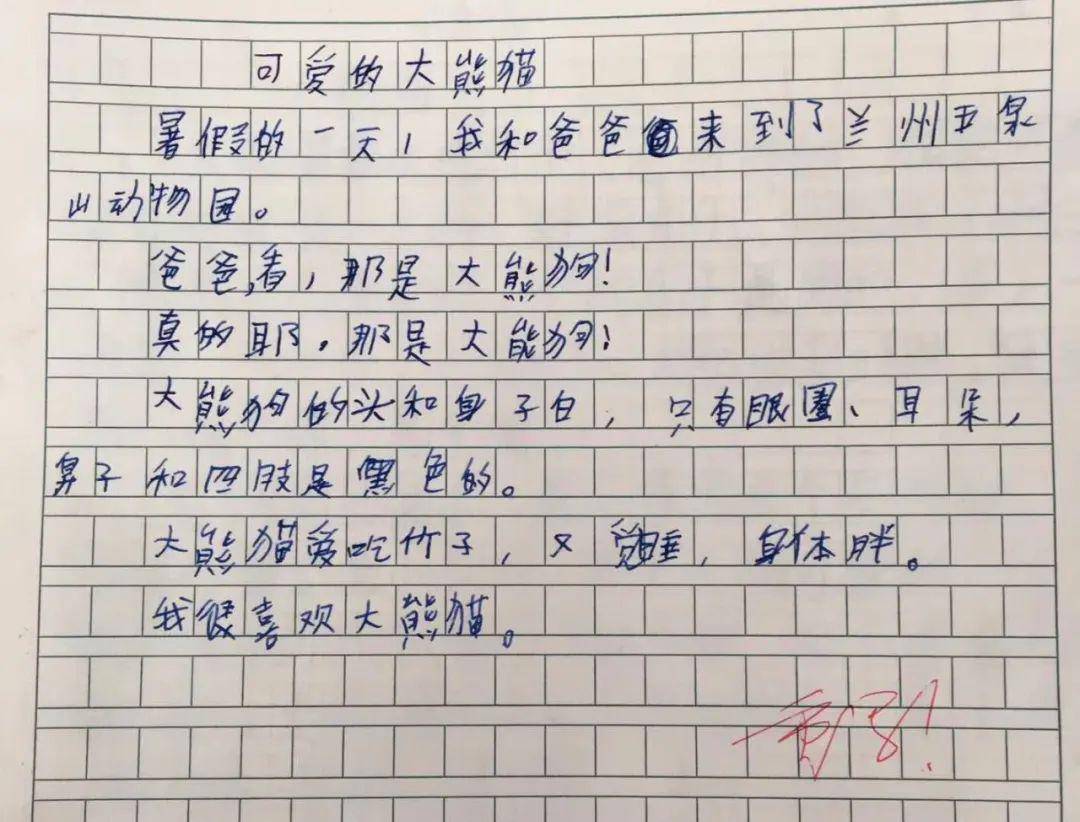 可爱的大熊猫
暑假的一天，我和爸爸来到了兰州五泉
山动物园。
爸爸，看，那是大熊狗！
真的耶。那是大能狗！
大熊狗的头和身子白，只有眼圈、耳朵，
鼻子和四肢是黑色的。
大熊猫爱吃竹子，又觉睡，身体胖。
我很喜观大熊猫。
重写！